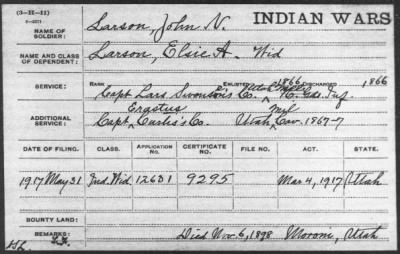 (3—H—H)
INDIAN WARS
NAME OF SOLDIER: Larson, John N.
NAME AND CLASS OF DEPENDENT: Larson, Elsie A. Wid
SERVICE: RANK ENLISTED 1866 DISCHARGED 1866
Capt Lars Swonson's Co. Utah Mil. Inf.
Erastus Mil
ADDITIONAL SERVICE: Capt. Curtis's Co. Utah Cav. 1867-7
DATE OF FILING. CLASS. APPLICATION No. CERTIFICATE No. FILE No. ACT. STATE.
1917 May 31 Ind. Wid. 12631 9295 Mar 4, 1917 Utah
BOUNTY LAND:
REMARKS: Died Nov. 6, 1898 Moroni, Utah